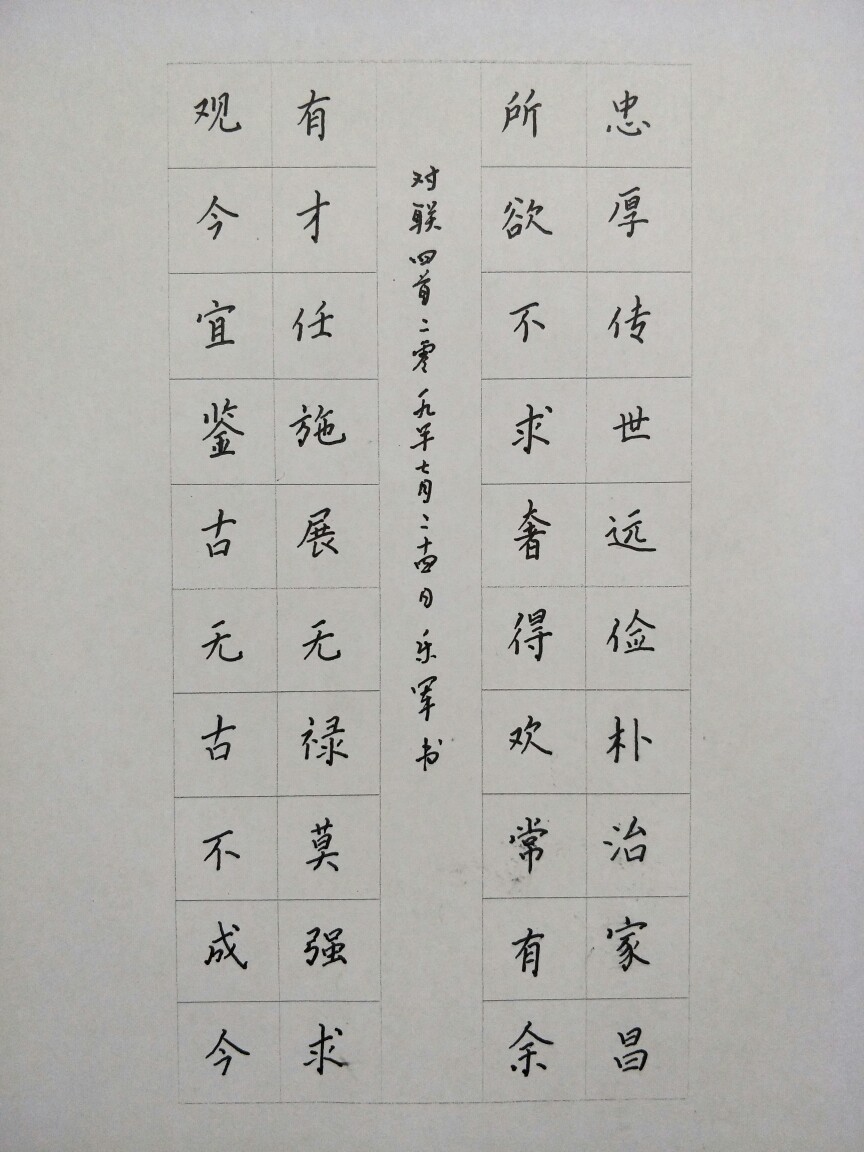 忠厚传世远俭朴治家昌
所欲不求奢得欢常有余
对联四首二零一九年七月二十四日乐军书
有才任施展无禄莫强求
观今宜鉴古无古不成今